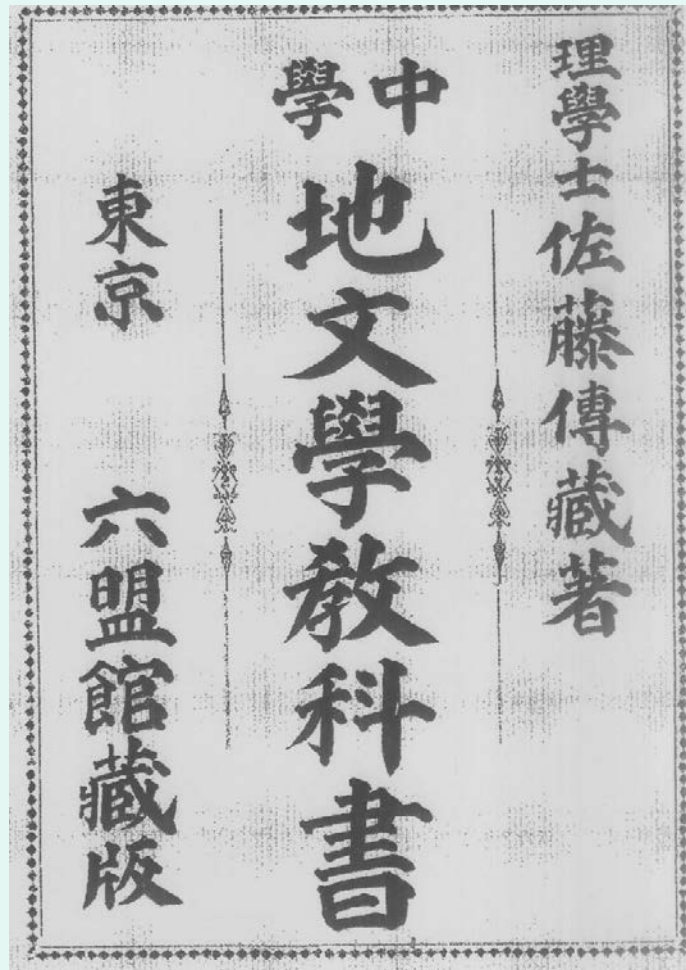 理學士佐藤傳藏著
中學
地文學教科書
東京 六盟館藏版